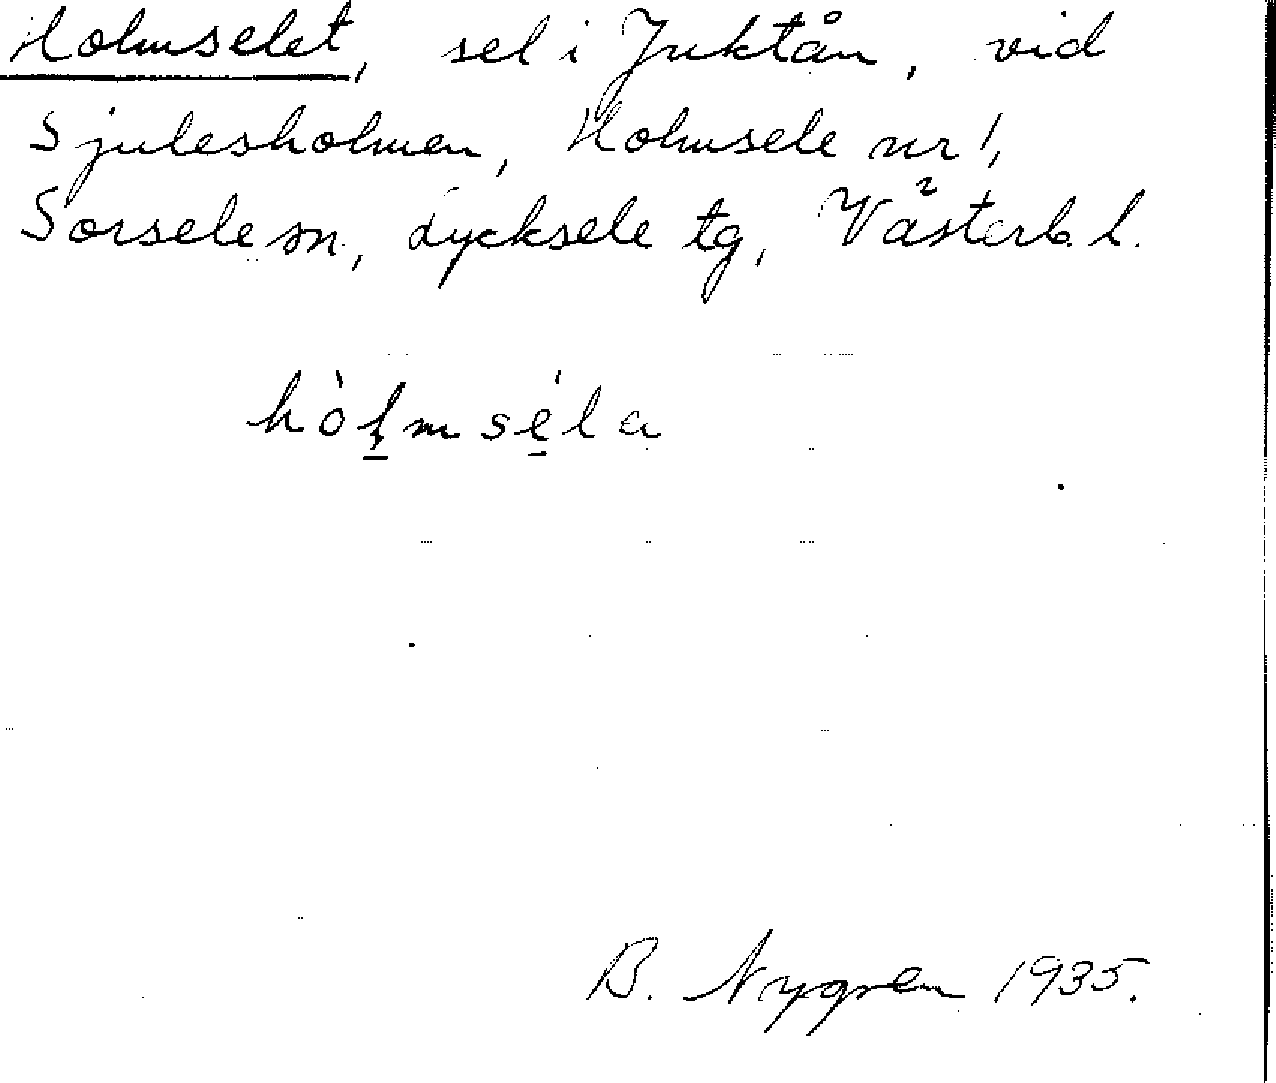 Holmselet, sel i Juktån, vid
Sjulesholmen, Holmsele nr 1,
Sorsele sn., Lycksele tg, Västerb. l.
hòḷmséla
B. Nygren 1935.